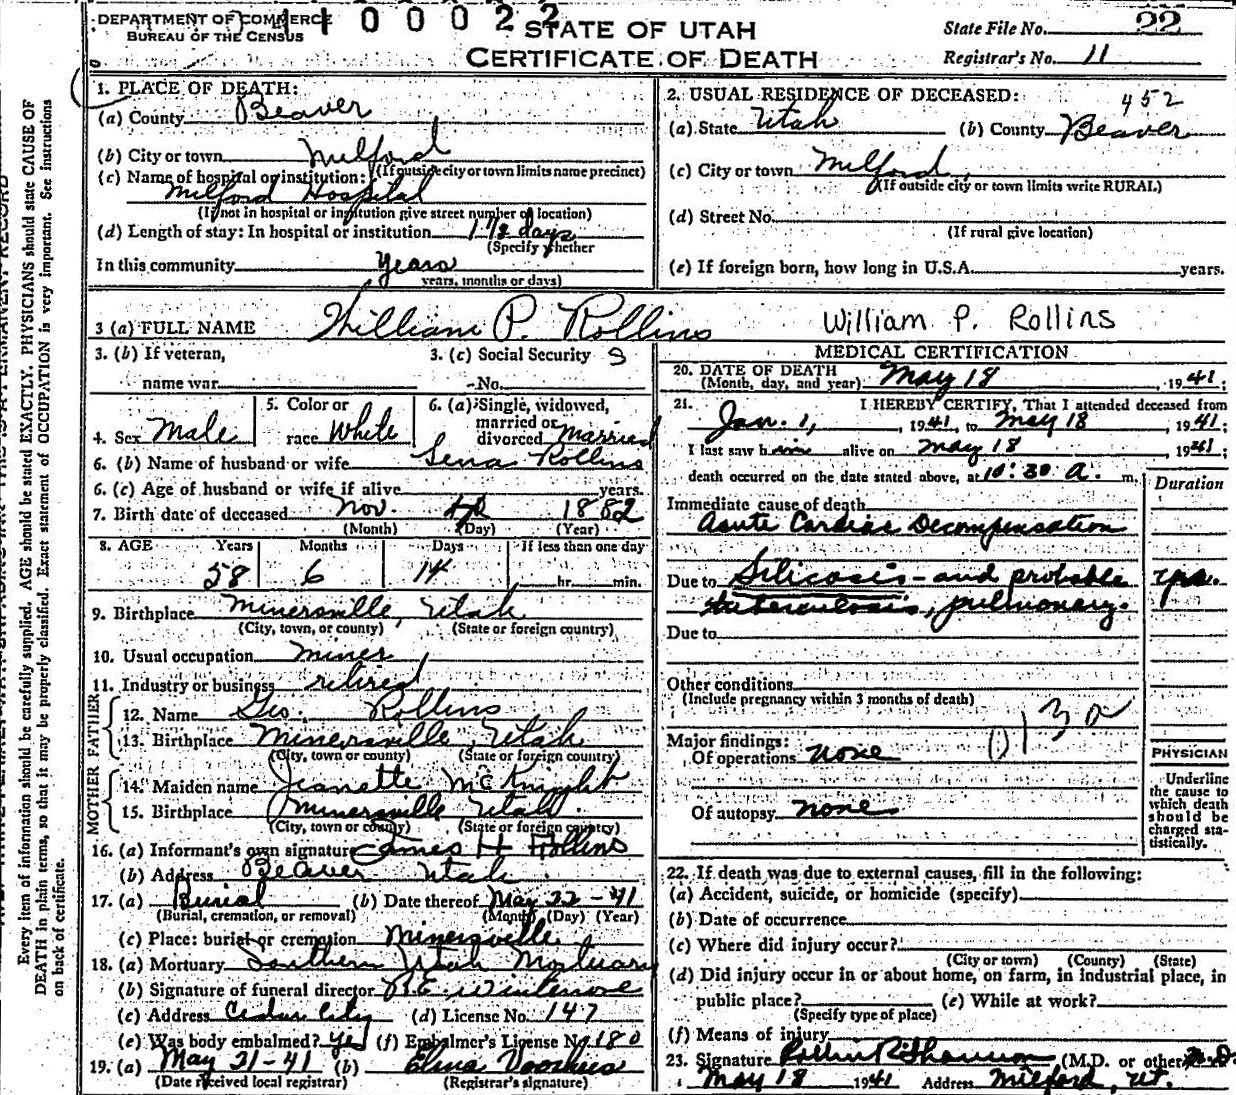 DEPARTMENT OF COMMERCE
BUREAU OF THE CENSUS
1 1 0 0 0 2 2
STATE OF UTAH
CERTIFICATE OF DEATH
State File No. 22
Registrar's No. 11
1. PLACE OF DEATH:
(a) County Beaver
(b) City or town Milford
(If outside city or town limits name precinct)
(c) Name of hospital or institution:
Milford Hospital
(If not in hospital or institution give street number or location)
(d) Length of stay: In hospital or institution 1 1/2 days
(Specify whether
In this community years
years, months or days)
2. USUAL RESIDENCE OF DECEASED:
452
(a) State Utah (b) County Beaver
(c) City or town Milford
(If outside city or town limits write RURAL)
(d) Street No.
(If rural give location)
(e) If foreign born, how long in U.S.A. years.
3 (a) FULL NAME William P. Rollins William P. Rollins
3. (b) If veteran, name war
3. (c) Social Security No.
4. Sex Male
5. Color or race White
6. (a) Single, widowed, married or divorced married
6. (b) Name of husband or wife Lena Rollins
6. (c) Age of husband or wife if alive years.
7. Birth date of deceased Nov. 4 1882
(Month) (Day) (Year)
8. AGE Years Months Days If less than one day
58 6 14 hr. min.
9. Birthplace Minersville, Utah
(City, town, or county) (State or foreign country)
10. Usual occupation miner
11. Industry or business retired
FATHER
12. Name Geo. Rollins
13. Birthplace Minersville Utah
(City, town or county) (State or foreign country)
MOTHER
14. Maiden name Jeanette McKnight
15. Birthplace Minersville Utah
(City, town or county) (State or foreign country)
16. (a) Informant's own signature James H Rollins
(b) Address Beaver Utah
17. (a) Burial (b) Date thereof May 22-41
(Burial, cremation, or removal) (Month) (Day) (Year)
(c) Place: burial or cremation Minersville
18. (a) Mortuary Southern Utah Mortuary
(b) Signature of funeral director
(c) Address Cedar City (d) License No. 147
(e) Was body embalmed? yes (f) Embalmer's License No. 180
19. (a) May 21-41 (b) Elma Voorhees
(Date received local registrar) (Registrar's signature)
MEDICAL CERTIFICATION
20. DATE OF DEATH
(Month, day, and year) May 18, 1941;
21. I HEREBY CERTIFY, That I attended deceased from
Jan. 1, 1941, to May 18, 1941;
I last saw him alive on May 18, 1941;
death occurred on the date stated above, at 10:30 a. m.
Duration
Immediate cause of death
Acute Cardiac Decompensation
Due to Silicosis - and probable yrs.
tuberculosis, pulmonary.
Due to
Other conditions
(Include pregnancy within 3 months of death)
Major findings:
Of operations none
Of autopsy none
PHYSICIAN
Underline
the cause to
which death
should be
charged sta-
tistically.
22. If death was due to external causes, fill in the following:
(a) Accident, suicide, or homicide (specify)
(b) Date of occurrence
(c) Where did injury occur?
(City or town) (County) (State)
(d) Did injury occur in or about home, on farm, in industrial place, in
public place? (e) While at work?
(Specify type of place)
(f) Means of injury
23. Signature (M.D. or other) M.D.
May 18 1941 Address Milford, Ut.
Every item of information should be carefully supplied. AGE should be stated EXACTLY. PHYSICIANS should state CAUSE OF
DEATH in plain terms, so that it may be properly classified. Exact statement of OCCUPATION is very important. See instructions
on back of certificate.